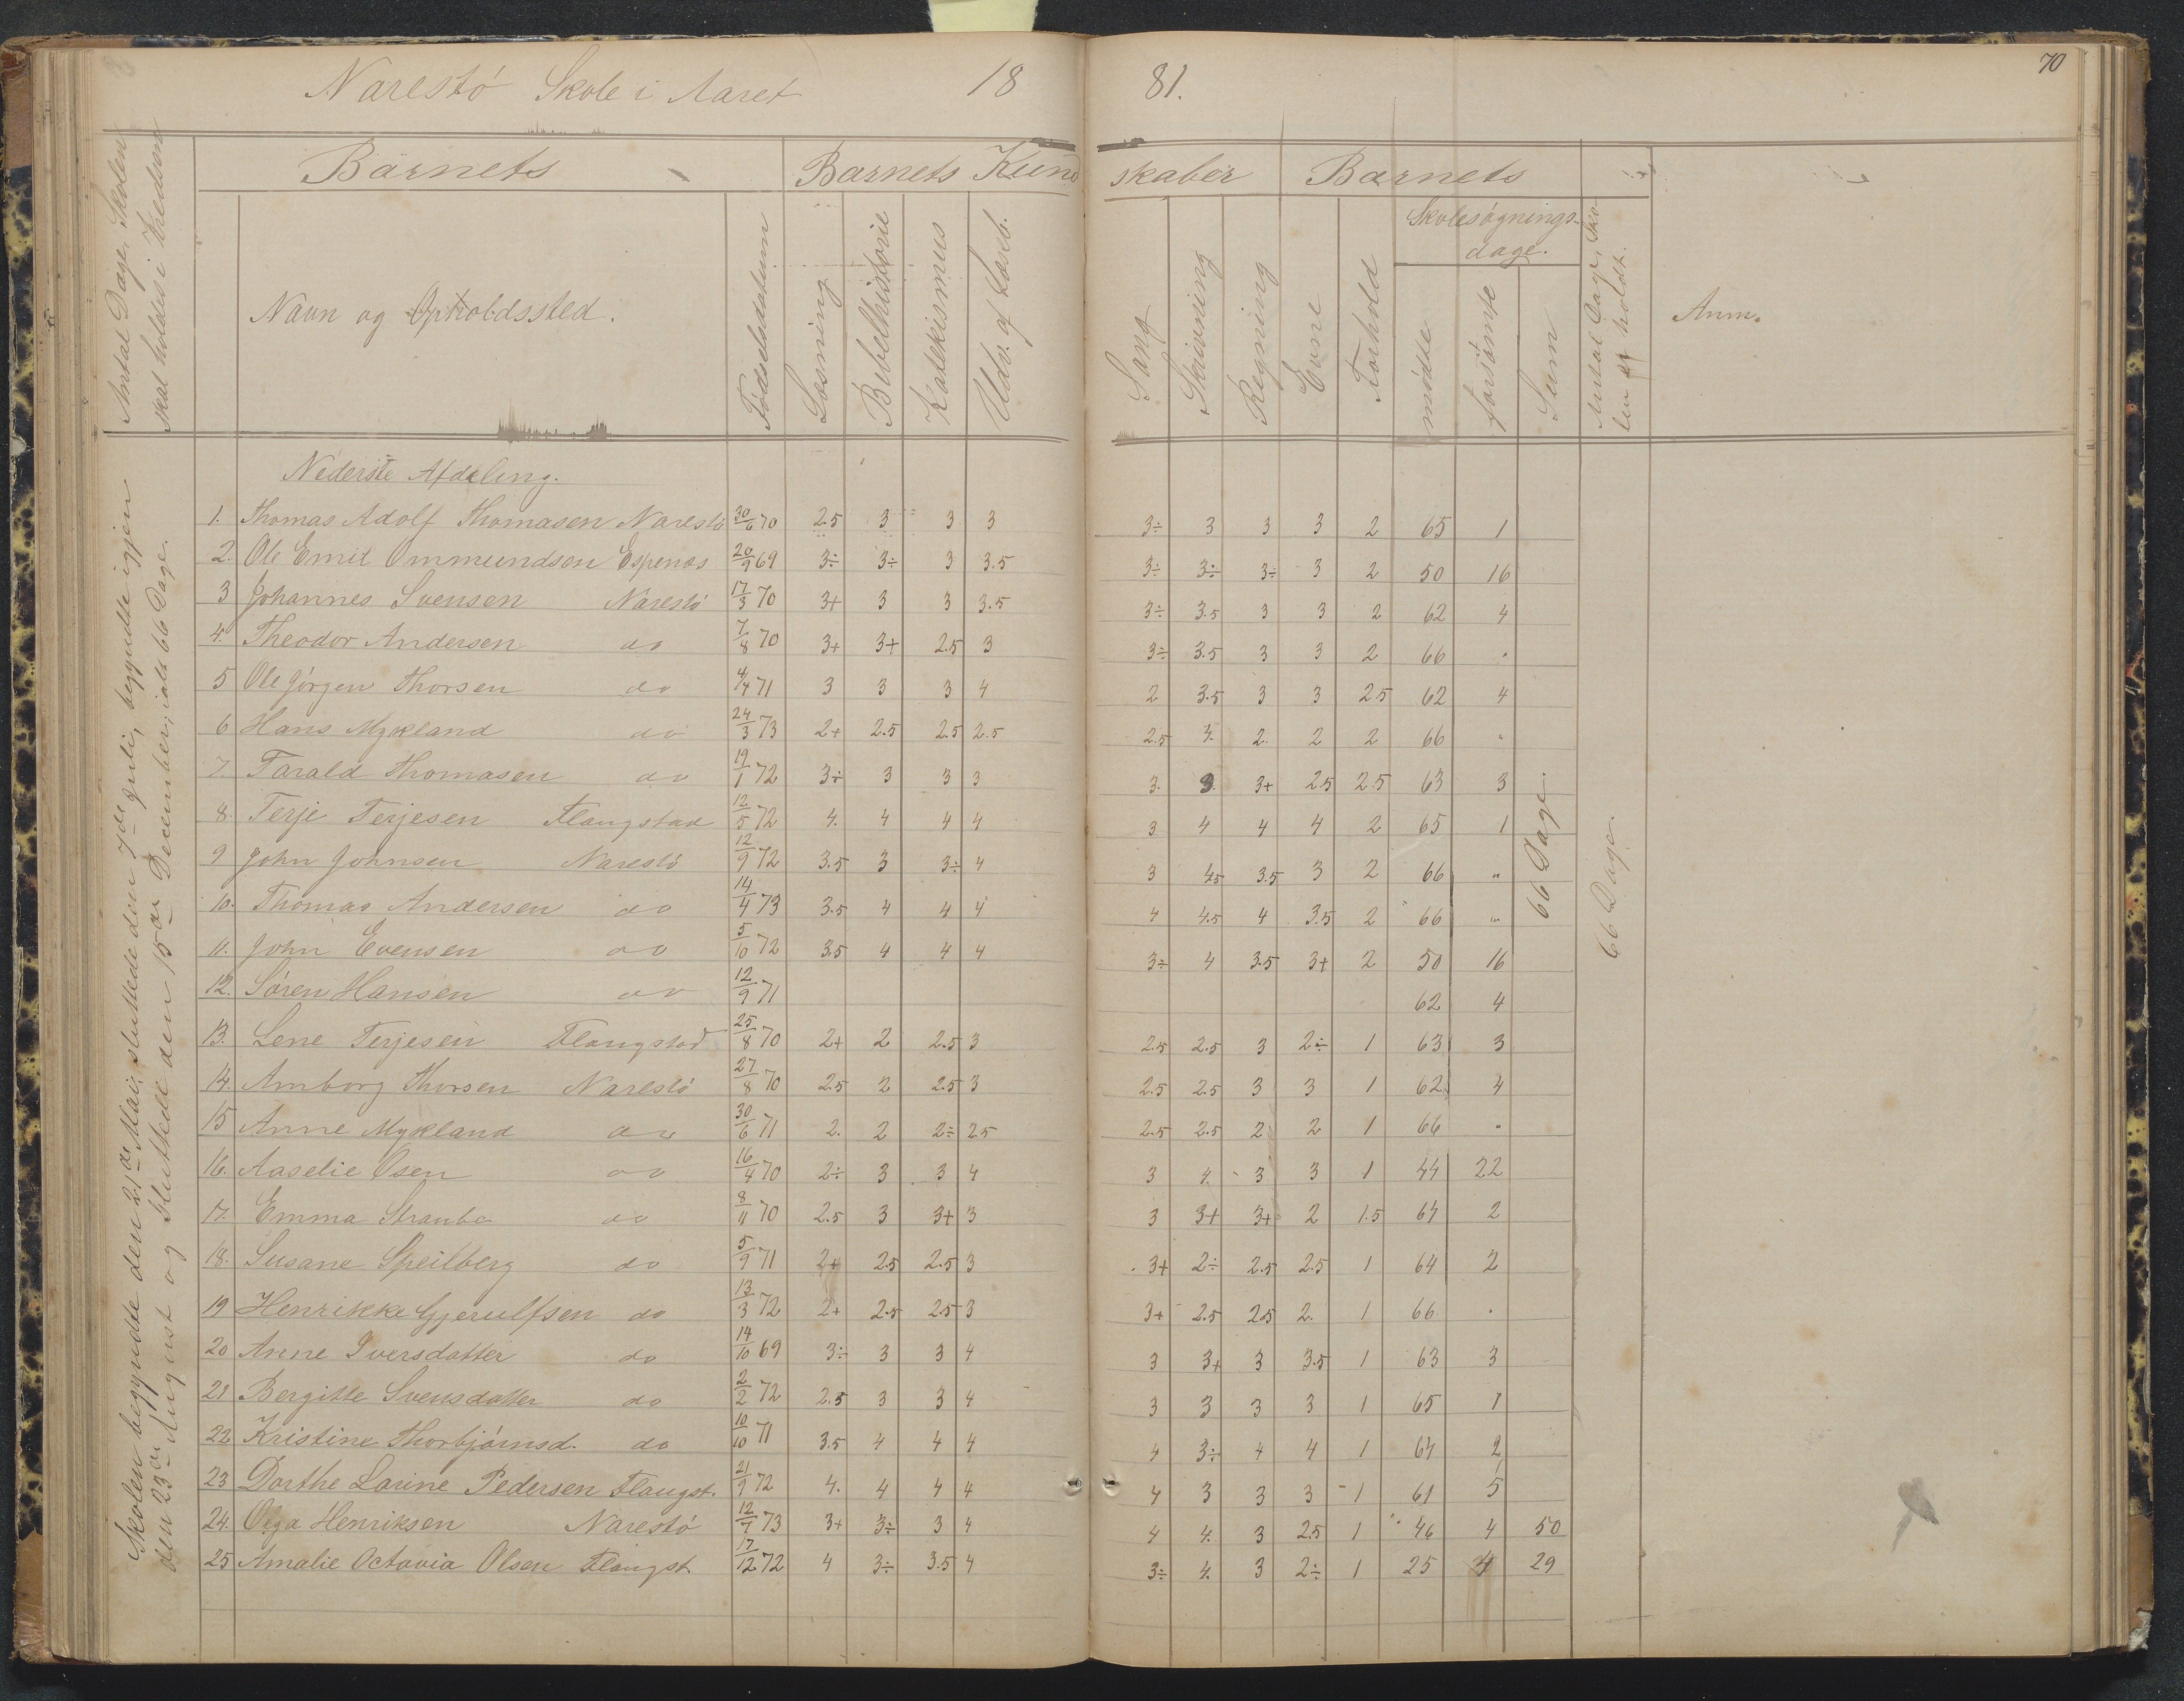 70
Narestö Skole i Aaret 1881.
Antal Dage Skolen skal holdes i Kredsen
Barnets
Barnets Kundskaber
Barnets
Navn og Opholdssted.
Födselsdatum
Læsning
Bibelhistorie
Katekismus
Udv. af Læseb.
Sang
Skrivning
Regning
Evne
Forhold
Skolesögnings-
dage.
mödte
forsömte
Sum
Antal Dage, Sko-
len er holdt.
Anm.
Skolen begyndte den 21de Mai, sluttede den 7de Juli, begyndte igjen
den 23de August og sluttede den 15de December, ialt 66 Dage.
Nederste Afdeling.
1. Thomas Adolf Thomasen Narestö 30/6 70 2.5 3 3 3 3÷ 3 3 3 2 65 1
2. Ole Emil Ommundsen Espenæs 20/9 69 3÷ 3÷ 3 3.5 3÷ 3÷ 3÷ 3 2 50 16
3 Johannes Svensen Narestö 17/3 70 3+ 3 3 3.5 3÷ 3.5 3 3 2 62 4
4. Theodor Andersen do 7/8 70 3+ 3+ 2.5 3 3÷ 3.5 3 3 2 66 "
5 Ole Jörgen Thorsen do 4/4 71 3 3 3 4 2 3.5 3 3 2.5 62 4
6 Hans Mykland do 24/3 73 2+ 2.5 2.5 2.5 2.5 3. 2. 2 2 66 "
7. Tarald Thomasen do 19/1 72 3÷ 3 3 3 3. 3. 3+ 2.5 2.5 63 3
8. Terje Terjesen Flangstad 12/5 72 4. 4 4 4 3 4 4 4 2 65 1
9 John Johnsen Narestö 12/9 72 3.5 3 3÷ 4 3 4.5 3.5 3 2 66 "
10. Thomas Andersen do 14/4 73 3.5 4 4 4 4 4.5 4 3.5 2 66 "
11. John Evensen do 5/10 72 3.5 4 4 4 3÷ 4 3.5 3+ 2 50 16
12. Sören Hansen do 12/9 71 62 4
13. Lene Terjesen Flangstad 25/8 70 2+ 2 2.5 3 2.5 2.5 3 2÷ 1 63 3
14. Amborg Thorsen Narestö 27/8 70 2.5 2 2.5 3 2.5 2.5 3 3 1 62 4
15 Anne Mykland do 30/6 71 2. 2 2÷ 2.5 2.5 2.5 2 2 1 66 "
16. Aaselie Osen do 16/4 70 2÷ 3 3 4 3 4. 3 3 1 44 22
17. Emma Straube do 8/11 70 2.5 3 3+ 3 3 3+ 3+ 2 1.5 64 2
18. Susane Speilberg do 5/9 71 2+ 2.5 2.5 3 3+ 2÷ 2.5 2.5 1 64 2
19 Henrikke Gjerulfsen do 13/3 72 2+ 2.5 2.5 3 3+ 2.5 2.5 2. 1 66 "
20 Anne Iversdatter do 14/10 69 3÷ 3 3 4 3 3+ 3 3.5 1 63 3
21 Bergitte Svensdatter do 2/2 72 2.5 3 3 4 3 3 3 3 1 65 1
22 Kristine Thorbjörnsd. do 10/10 71 3.5 4 4 4 4 3÷ 4 4 1 64 2
23 Dorthe Larine Pedersen Flangst. 21/9 72 4. 4 4 4 4 3 3 3 1 61 5
24. Olga Henriksen Narestö 12/7 73 3+ 3÷ 3 4 4 4. 3 2.5 1 46 4 50
25 Amalie Octavia Olsen Flangst. 17/12 72 4 3÷ 3.5 4 3÷ 4. 3 2÷ 1 25 4 29
66 Dage.
66 Dage.